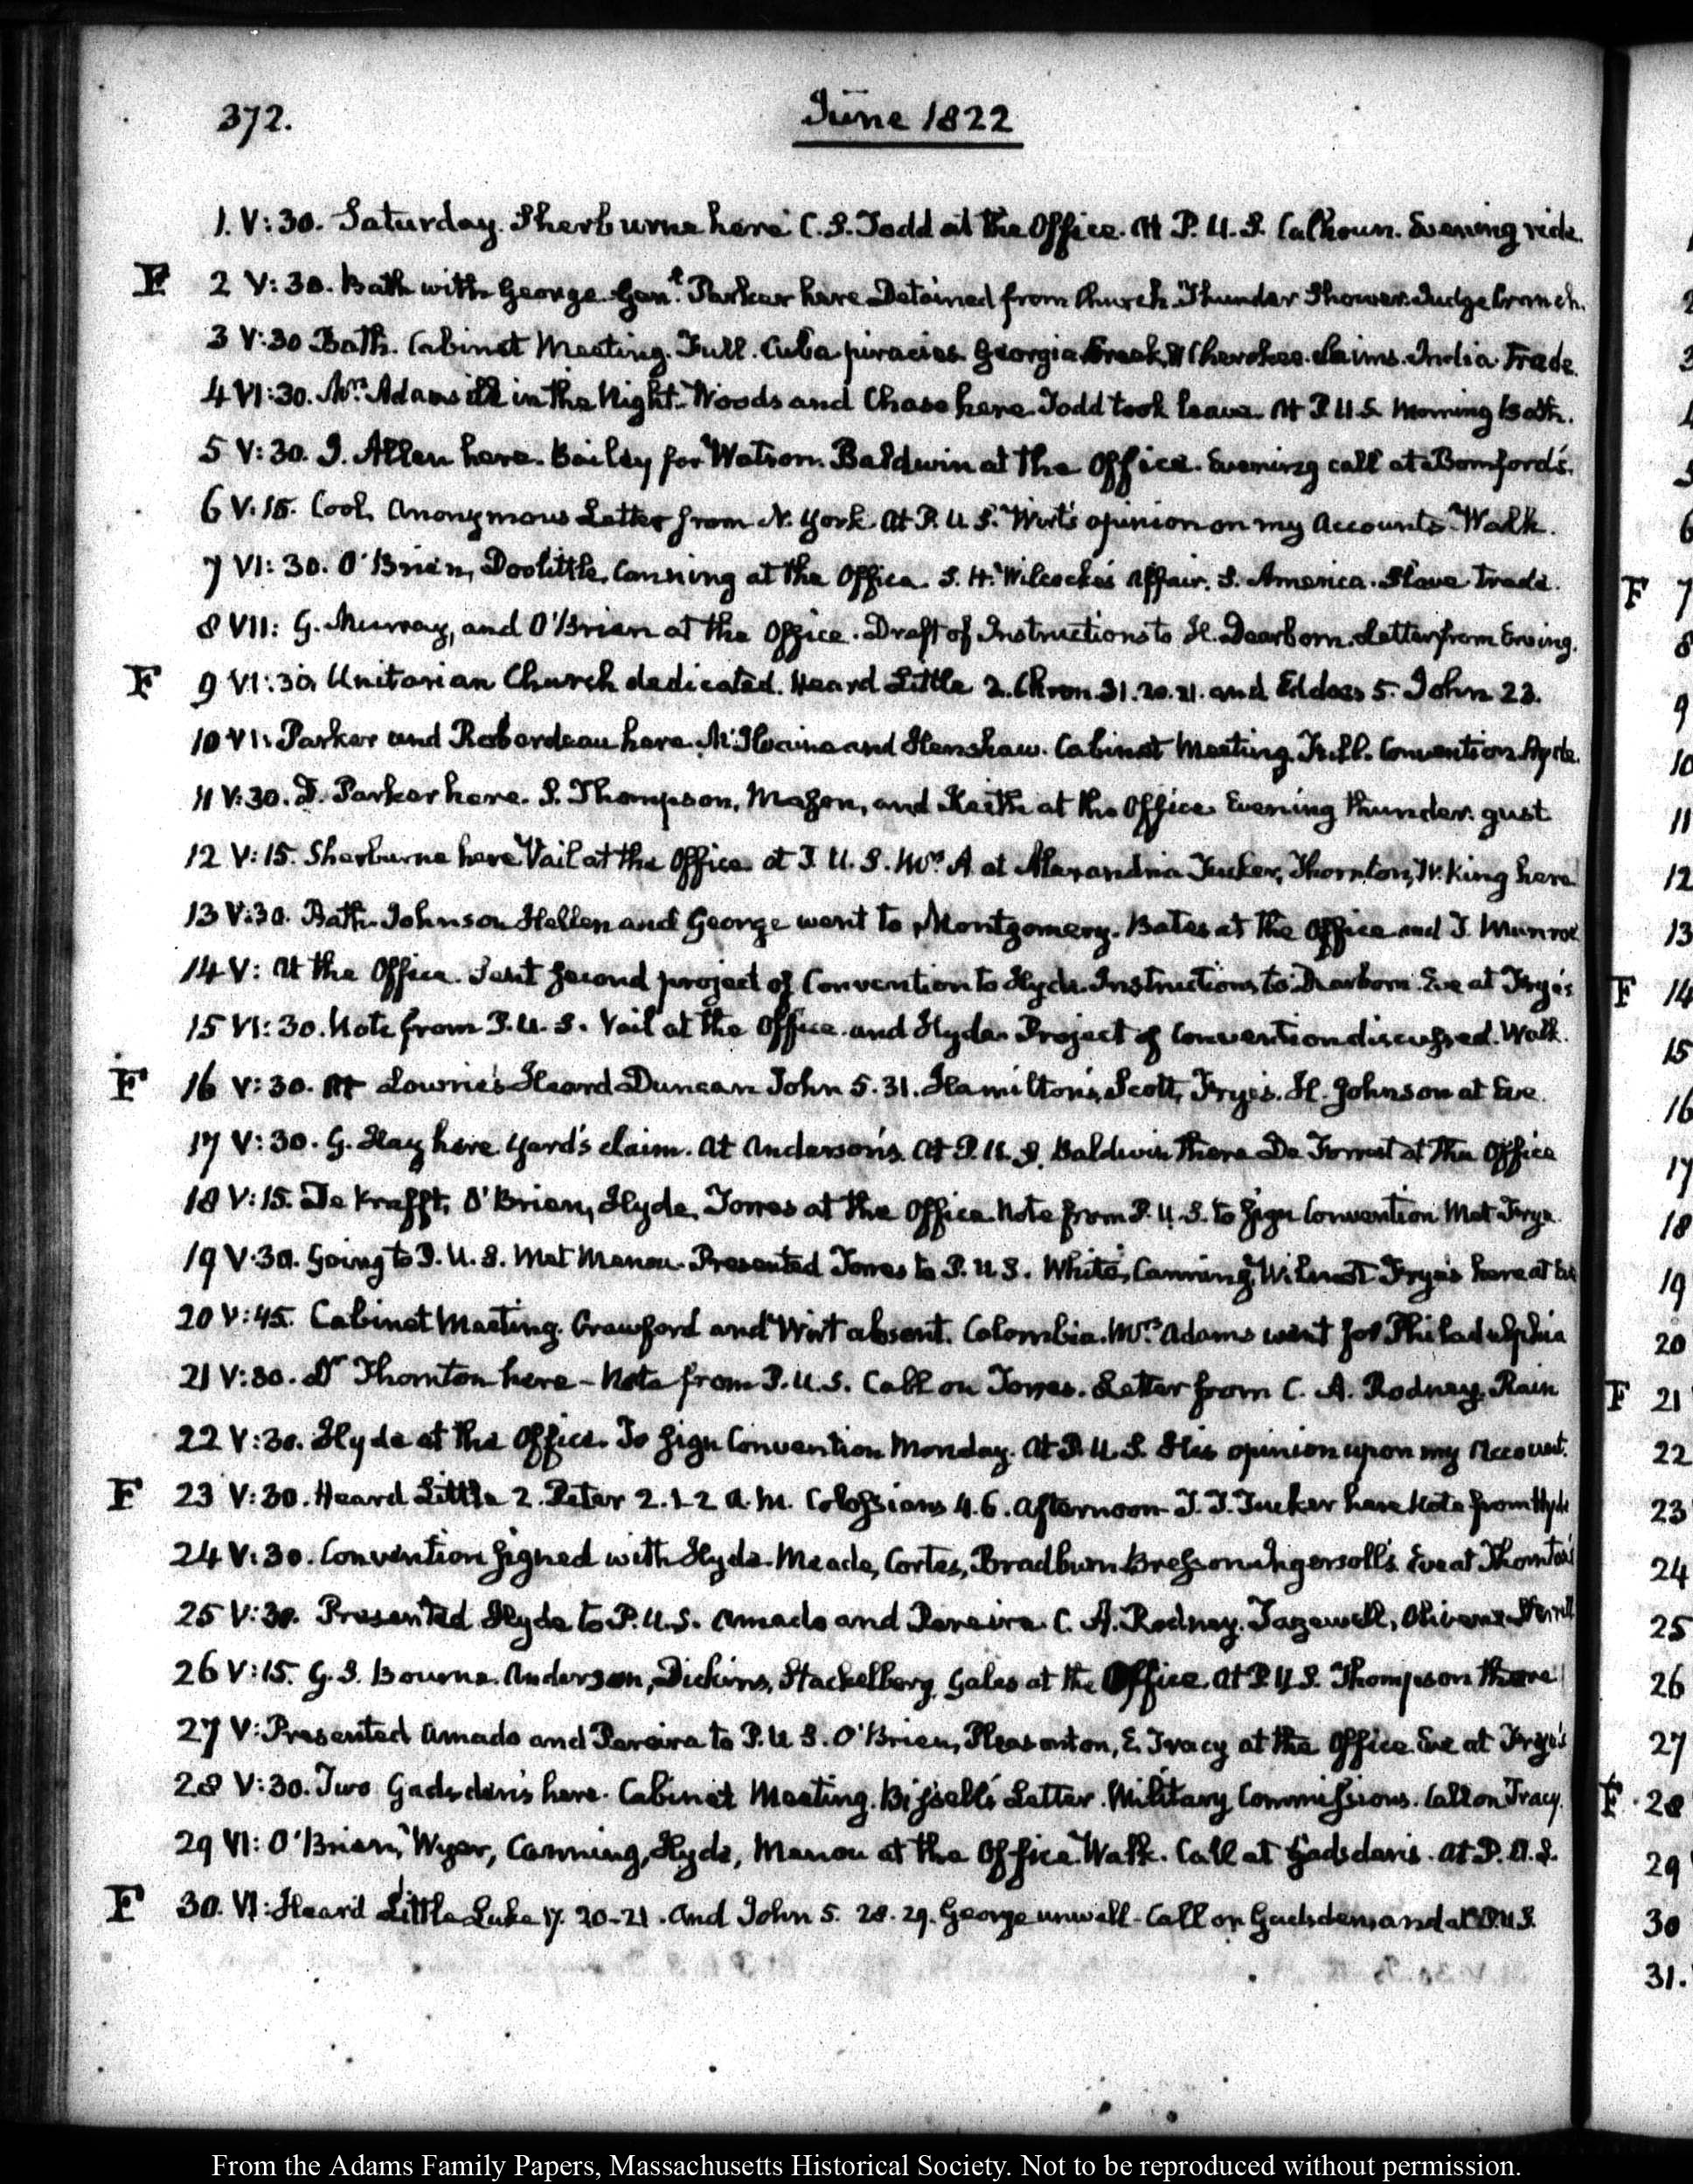 372.
June 1822
1. V:30. Saturday. Sherburne here C. S. Todd at the Office. At P. U. S. Calhoun. Evening ride.
F 2 V:30. Bath with George. Genl. Parker here Detained from Church. Thunder Shower. Judge Cranch.
3 V:30 Bath. Cabinet Meeting. Full. Cuba piracies. Georgia Creek & Cherokee claims. India Trade.
4 VI:30. Mrs. Adams ill in the Night. Woods and Chase here. Todd took leave. At P. U. S. Morning Bath.
5 V:30. I. Allen here. Bailey for Watson. Baldwin at the Office. Evening call at Bomford's.
6 V:15. Cool. Anonymous Letter from N. York. At P. U. S. Wirt's opinion on my Accounts. Walk.
7 VI:30. O'Brien, Doolittle, Canning at the Office. S. H. Wilcocks's Affair. S. America. Slave Trade.
8 VII: G. Murray, and O'Brien at the Office. Draft of Instructions to H. Dearborn. Letter from Erving.
F 9 VI:30. Unitarian Church dedicated. Heard Little 2. Chron. 31. 20. 21. and Eddoes 5. John 23.
10 VI: Parker and Roberdeau here. McIlvaine and Henshaw. Cabinet Meeting. Full. Convention. Hyde.
11 V:30. D. Parker here. S. Thompson, Mason, and Keith at the Office. Evening thunder gust
12 V:15. Sherburne here Vail at the Office at P. U. S. Mrs. A. at Alexandria Tucker, Thornton, W. King here
13 V:30. Bath. Johnson Hellen and George went to Montgomery. Bates at the Office and J. Munroe
14 V: At the Office. Sent second project of Convention to Hyde. Instructions to Dearborn. Eve at Frye's
15 VI:30. Note from P. U. S. Vail at the Office and Hyde. Project of Convention discussed. Walk.
F 16 V:30. At Lowrie's Heard Duncan John 5. 31. Hamilton's, Scott, Frye's. H. Johnson at Eve.
17 V:30. G. Hay here. Yard's claim. At Anderson's. At P. U. S. Baldwin there De Forrest at the Office
18 V:15. De Krafft, O'Brien, Hyde, Torres at the Office. Note from P. U. S. to sign Convention Met Frye.
19 V:30. Going to P. U. S. Met Menou. Presented Torres to P. U. S. White, Canning, Wilmot Frye's here at Eve
20 V:45. Cabinet Meeting. Crawford and Wirt absent. Colombia. Mrs. Adams went for Philadelphia
21 V:30. Dr Thornton here - Note from P. U. S. Call on Torres. Letter from C. A. Rodney. Rain
22 V:30. Hyde at the Office. To sign Convention Monday. At P. U. S. His opinion upon my Account.
F 23 V:30. Heard Little 2. Peter 2. 1-2 A. M. Colossians 4. 6. Afternoon T. T. Tucker here Note from Hyde
24 V:30. Convention signed with Hyde. Meade, Cortes, Bradburn Bresson Ingersoll's. Eve at Thornton's
25 V:30. Presented Hyde to P. U. S. Amado and Pereira. C. A. Rodney. Tazewell,
26 V:15. G. S. Bourne. Anderson, Dickins, Stackelberg, Gales at the Office. At P. U. S. Thompson there
27 V: Presented Amado and Pereira to P. U. S. O'Brien, Pleasonton, E. Tracy at the Office. Eve at Frye's
28 V:30. Two Gadsden's here. Cabinet Meeting. Bissell's Letter. Military Commissions. Call on Tracy.
29 VI: O'Brien, Wyer, Canning, Hyde, Menou at the Office. Walk. Call at Gadsden's. At P. U. S.
F 30. VI: Heard Little Luke 17. 20-21. and John 5. 28. 29. George unwell. Call on Gadsden, and at P. U. S.
F 7
8
9
10
11
12
13
F 14
15
16
17
18
19
20
F 21
22
23
24
25
26
27
F 28
29
30
31.
From the Adams Family Papers, Massachusetts Historical Society. Not to be reproduced without permission.